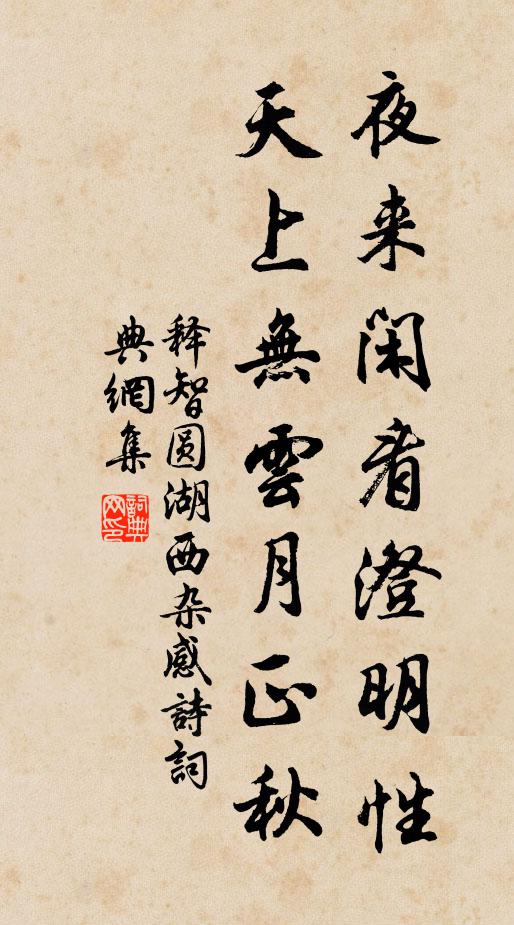 夜来闲看澄明性
天上無雲月正秋
释智圆湖西杂感詩詞
典網集
詞典
网印